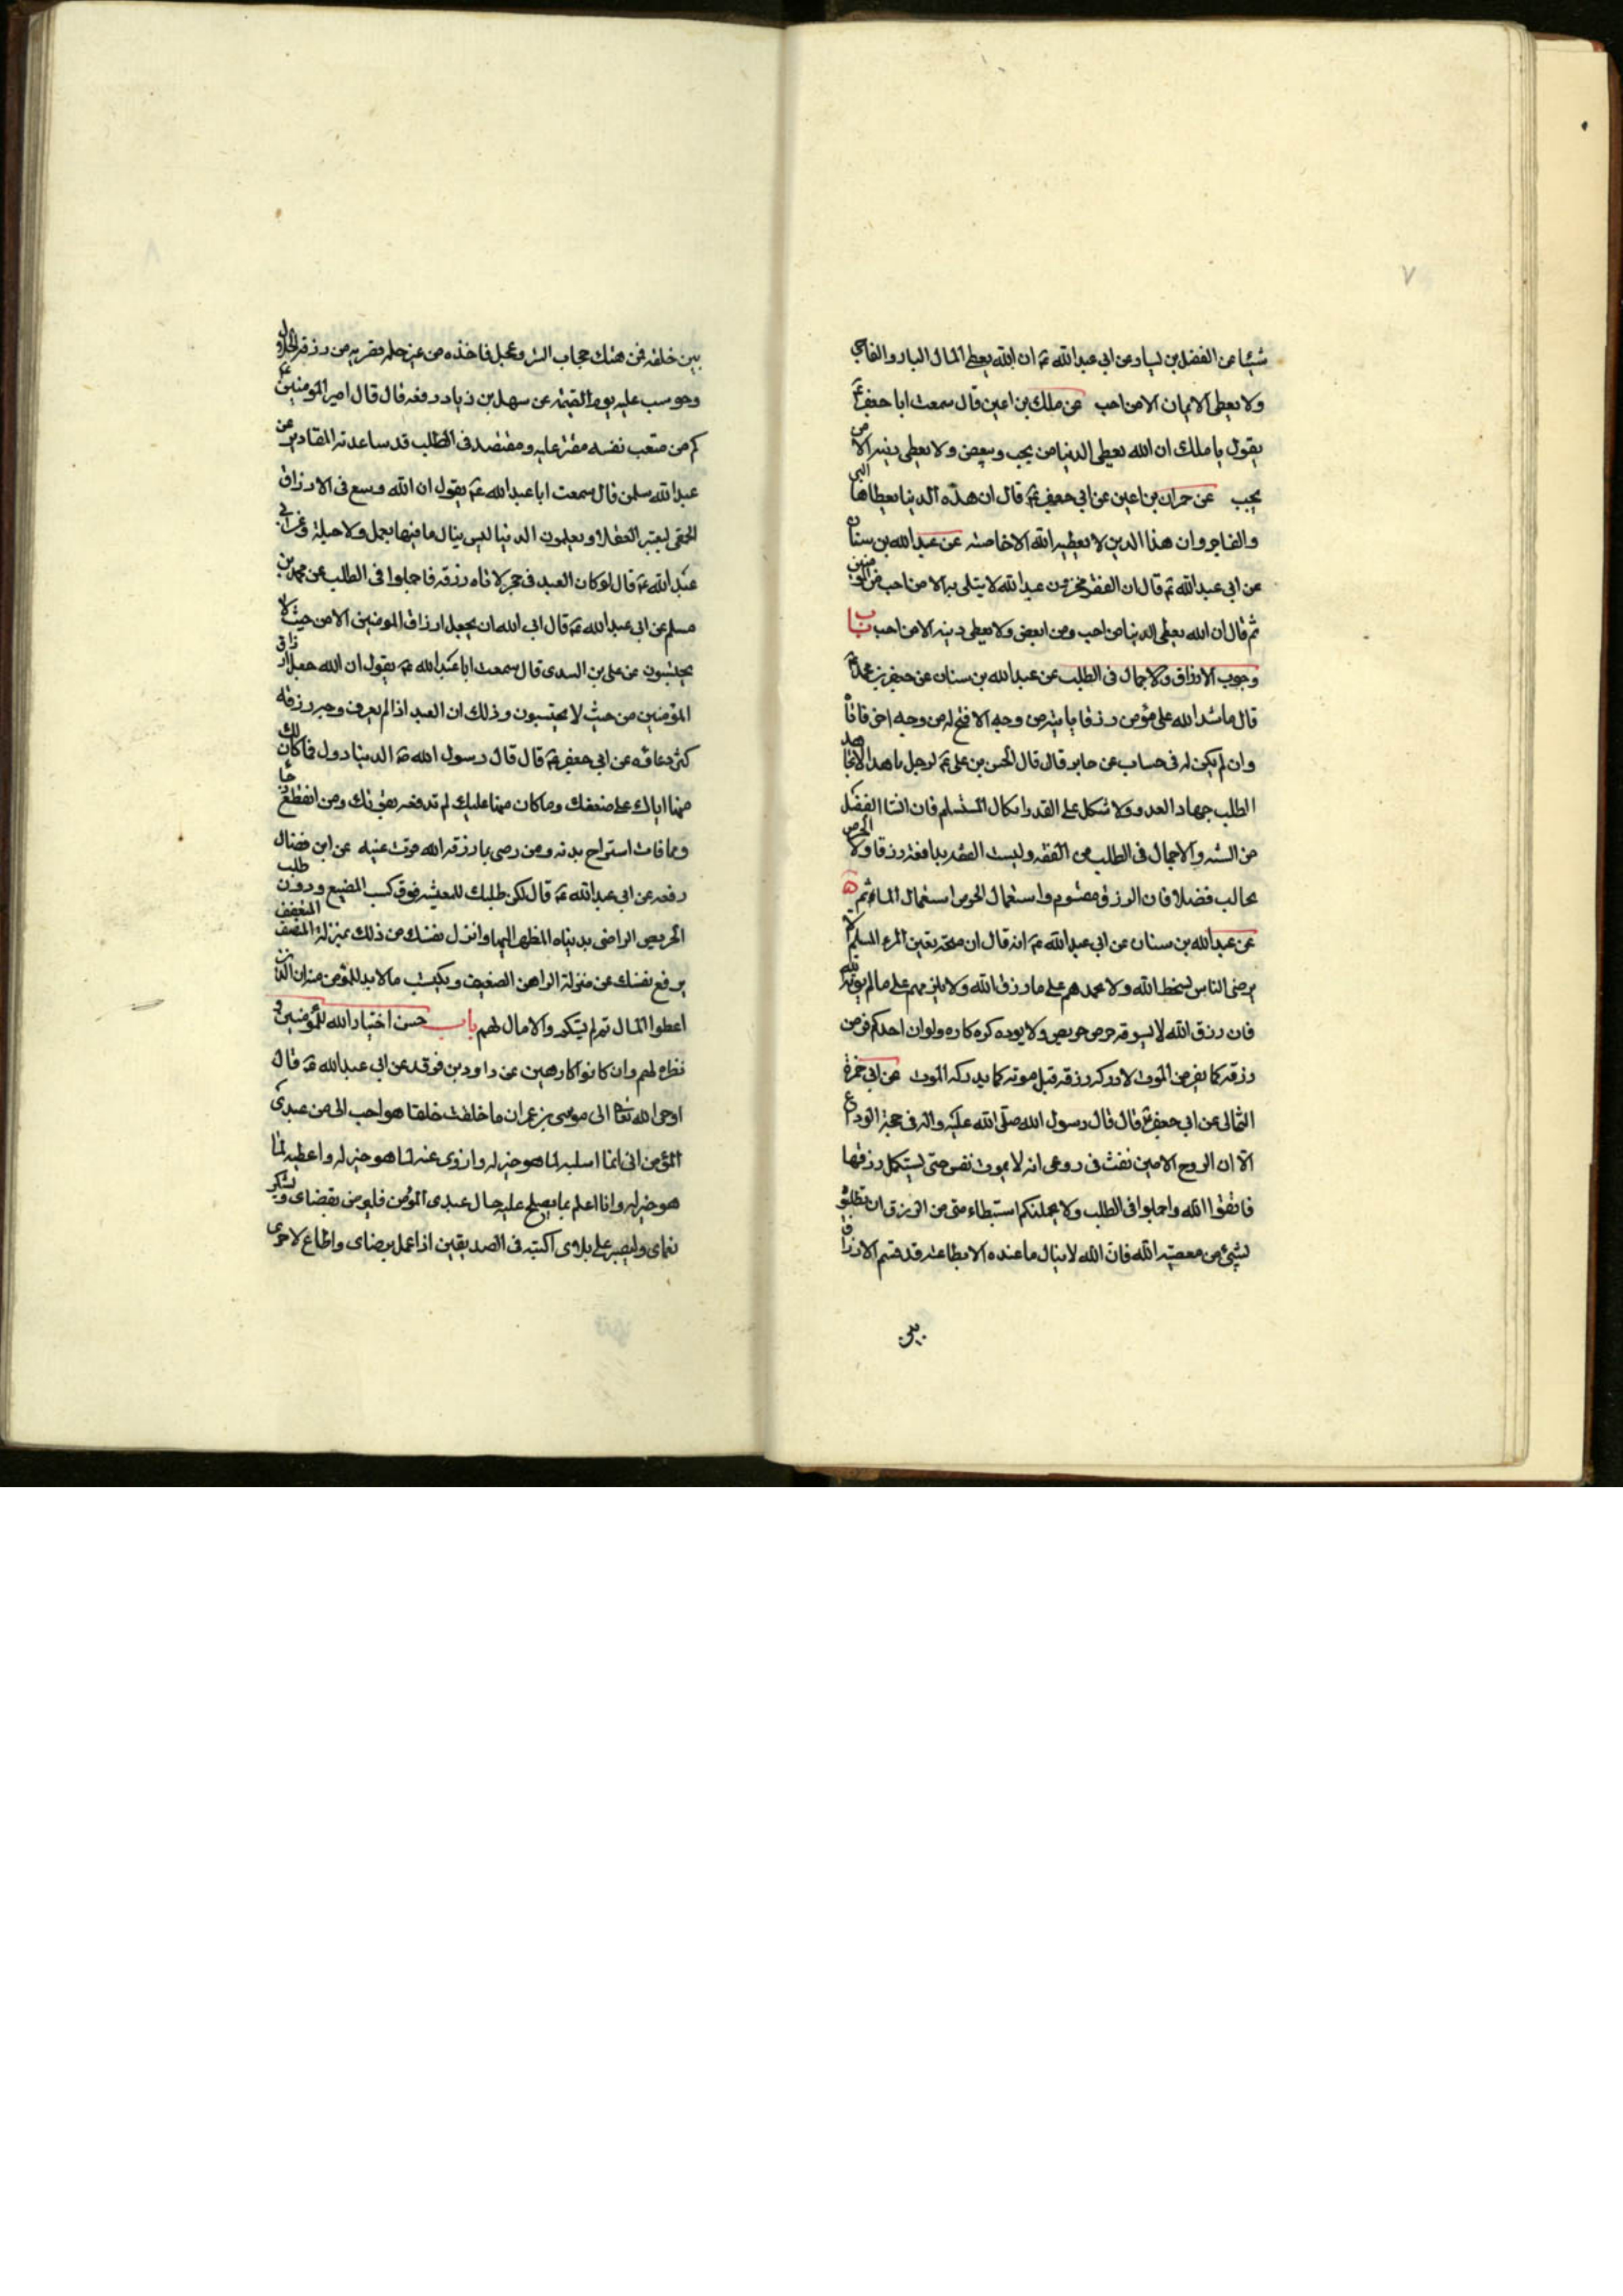 ٧
شيئا عن الفضل بن يسار عن ابي عبد الله ع ان الله يعطي المال البار والفاجر
ولا يعطي الايمان الا من احب عن ملك بن اعين قال سمعت ابا جعفر ع
يقول يا ملك ان الله يعطي الدنيا من يحب ويبغض ولا يعطي دينه الا من
يحب عن حمران بن اعين عن ابي جعفر ع قال ان هذه الدنيا يعطاها البر
والفاجر وان هذا الدين لا يعطيه الله الا خاصته عن عبد الله بن سنان
عن ابي عبد الله ع قال ان الفقر مخزون عند الله لا يبتلي به الا من احب من المؤمنين
ثم قال ان الله يعطي الدنيا من احب ومن ابغض ولا يعطي دينه الا من احب باب
وجوب الارزاق والاجمال في الطلب عن عبد الله بن سنان عن جعفر بن محمد ع
قال ما سد الله على مؤمن رزقا ياتيه من وجه الا فتح له من وجه اخر فاتاه
وان لم يكن له في حساب عن جابر قال قال الحسن بن علي ع لرجل يا هذا لا تجاهد
الطلب جهاد العدو ولا تتكل على القدر اتكال المستسلم فان انشا الفضل
من السنه والاجمال في الطلب من العفه وليست العفه بدافعة رزقا ولا الحرص
بجالب فضلا فان الرزق مقسوم واستعمال الحرص استعمال الماثم
عن عبد الله بن سنان عن ابي عبد الله ع انه قال ان من صحة يقين المرء المسلم لا
يرضي الناس بسخط الله ولا يحمدهم على ما رزق الله ولا يلومهم على ما لم يؤته الله
فان رزق الله لا يسوقه حرص حريص ولا يرده كره كاره ولو ان احدكم فر من
رزقه كما يفر من الموت لادركه رزقه قبل موته كما يدركه الموت عن ابي حمزة
الثمالي عن ابي جعفر ع قال قال رسول الله صلى الله عليه واله في حجة الوداع
الا ان الروح الامين نفث في روعي انه لا يموت نفس حتى يستكمل رزقها
فاتقوا الله واجملوا في الطلب ولا يحملنكم استبطاء شئ من الرزق ان تطلبوه
لشئ من معصية الله فان الله لا ينال ما عنده الا بطاعته قد قسم الارزاق
بين
٨
بين خلقه فمن هتك حجاب الستر وعجل فاخذه من غير حله قص به من رزقه الحلال
وحوسب عليه يوم القيمة عن سهل بن زياد رفعه قال قال امير المؤمنين ع
كم من متعب نفسه مقتر عليه ومقتصد في الطلب قد ساعدته المقادير عن
عبد الله سلمن قال سمعت ابا عبد الله ع يقول ان الله وسع في الارزاق
الحمقى ليعتبر العقلا ويعلمون ان الدنيا ليس ينال ما فيها بعمل ولا حيلة وعن ابي
عبد الله ع قال لو كان العبد في حجر لاتاه رزقه فاجملوا في الطلب عن محمد بن
مسلم عن ابي عبد الله ع قال ابى الله ان يجعل ارزاق المؤمنين الا من حيث لا
يحتسبون عن علي بن السدي قال سمعت ابا عبد الله ع يقول ان الله جعل ارزاق
المؤمنين من حيث لا يحتسبون وذلك ان العبد اذا لم يعرف وجه رزقه
كثر دعاؤه عن ابي جعفر ع قال قال رسول الله ص الدنيا دول فما كان لك
منها اتاك على ضعفك وما كان منها عليك لم تدفعه بقوتك ومن انقطع رجاه
مما فات استراح بدنه ومن رضي بما رزقه الله قرت عينه عن ابن فضال
رفعه عن ابي عبد الله ع قال ليكن طلبك للمعيشه فوق كسب المضيع ودون طلب
الحريص الراضي بدنياه المطمئن اليها وانزل نفسك من ذلك بمنزلة المنصف المتعفف
يرفع نفسك عن منزلة الراهن الضعيف ويكتسب ما لا بد للمؤمن منه ان الذين
اعطوا المال ثم لم يشكروا لا مال لهم باب حسن اختيار الله للمؤمنين و
نظره لهم وان كانوا كارهين عن داود بن فرقد عن ابي عبد الله ع قال
اوحى الله تعالى الى موسى بن عمران ما خلقت خلقا هو احب الي من عبدي
المؤمن اني انما ابتليه لما هو خير له وازوي عنه لما هو خير له واعطيه لما
هو خير له وانا اعلم بما يصلح عليه حال عبدي المؤمن فليرض بقضاي ويشكر
نعماي وليصبر على بلاي اكتبه في الصديقين اذا عمل برضاي واطاع لامري